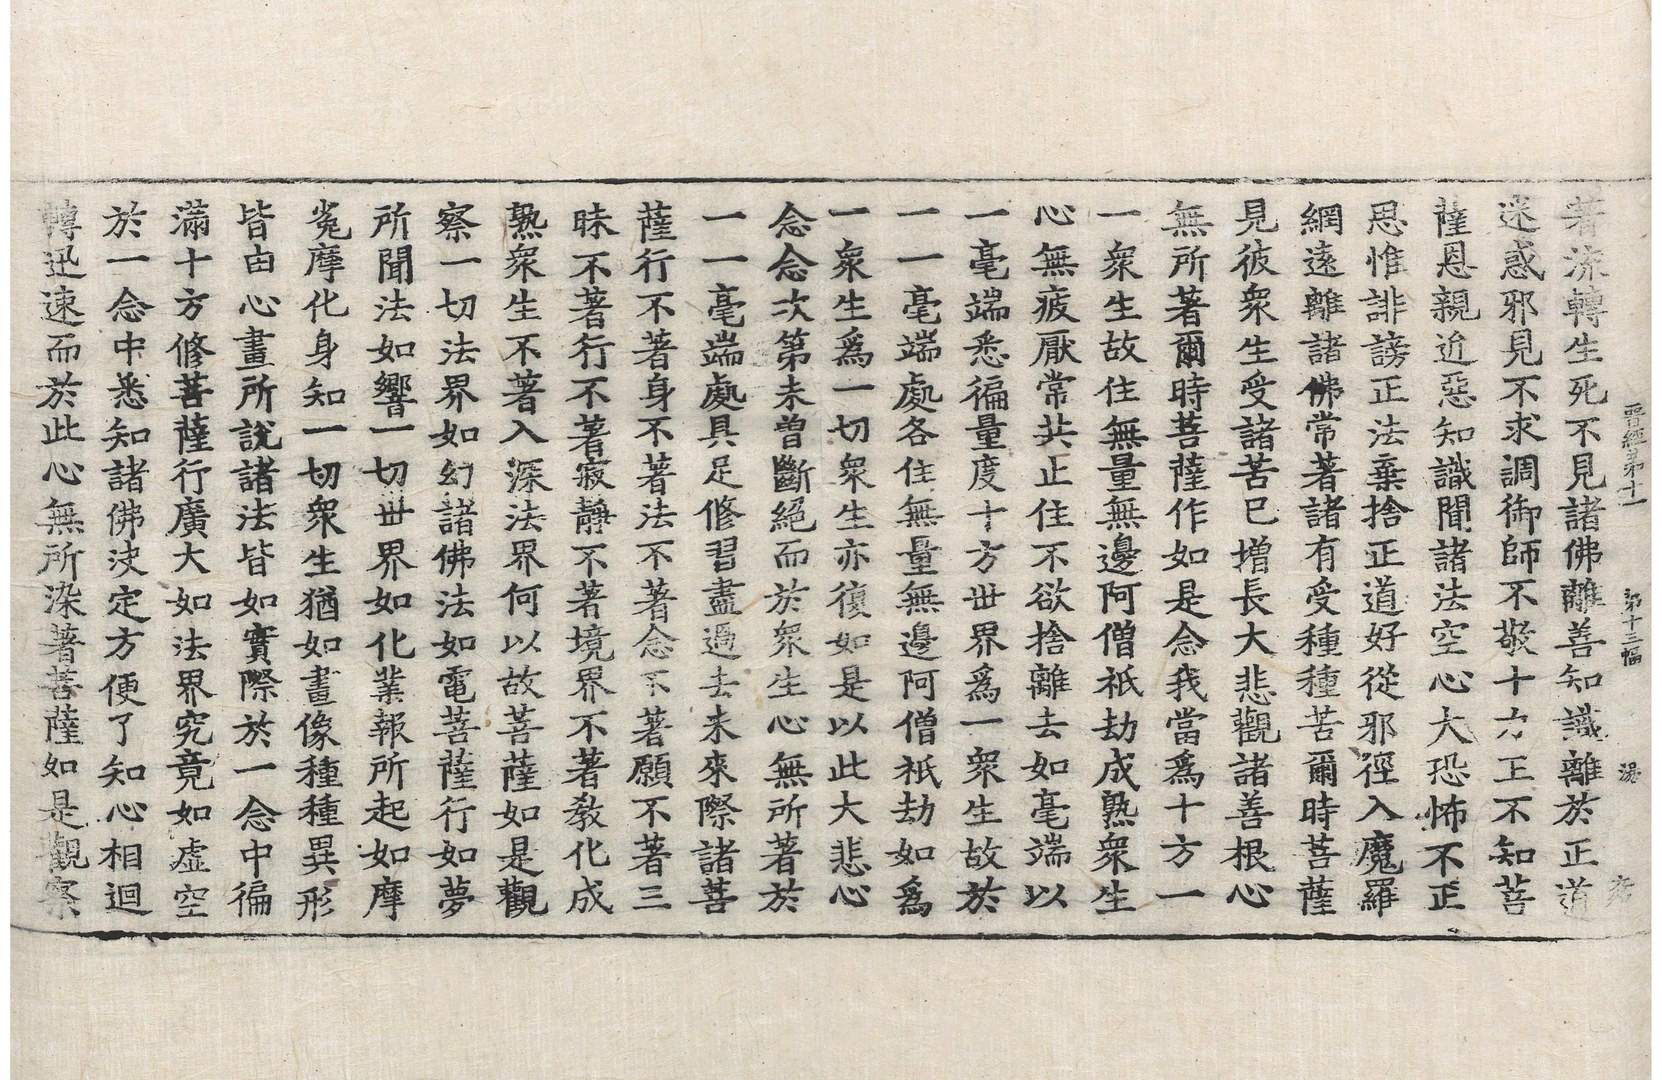 晋經第十一 第十三幅 湯
著流轉生死不見諸佛離善知識離於正道
迷惑邪見不求調御師不敬十六王不知菩
薩恩親近惡知識聞諸法空心大恐怖不正
思惟誹謗正法棄捨正道好從邪徑入魔羅
網遠離諸佛常著諸有受種種苦爾時菩薩
見彼衆生受諸苦已增長大悲觀諸善根心
無所著爾時菩薩作如是念我當爲十方一
一衆生故住無量無邊阿僧祇劫成熟衆生
心無疲厭常共止住不欲捨離去如毫端以
一毫端悉徧量度十方世界爲一衆生故於
一一毫端處各住無量無邊阿僧祇劫如爲
一衆生爲一切衆生亦復如是以此大悲心
念念次第未曾斷絕而於衆生心無所著於
一一毫端處具足修習盡過去未來際諸菩
薩行不著身不著法不著念不著願不著三
昧不著行不著寂靜不著境界不著教化成
熟衆生不著入深法界何以故菩薩如是觀
察一切法界如幻諸佛法如電菩薩行如夢
所聞法如響一切世界如化業報所起如摩
㝹摩化身知一切衆生猶如畫像種種異形
皆由心畫所說諸法皆如實際於一念中徧
滿十方修菩薩行廣大如法界究竟如虛空
於一念中悉知諸佛決定方便了知心相迴
轉迅速而於此心無所染著菩薩如是觀察